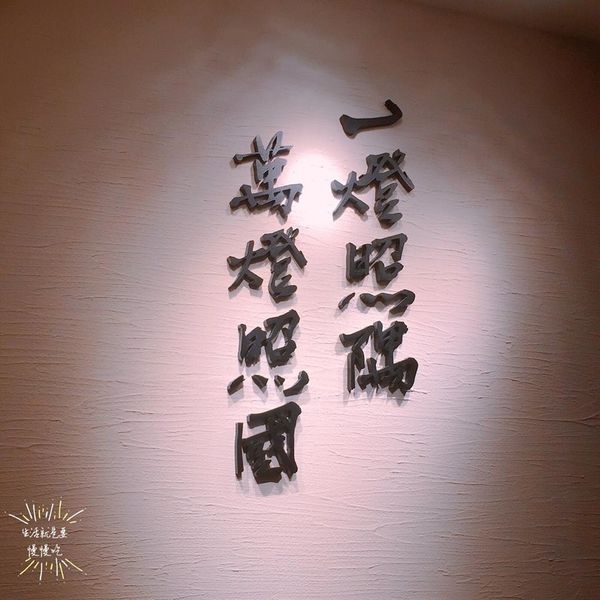 一燈照隅
萬燈照國
生活就是要
慢慢吃